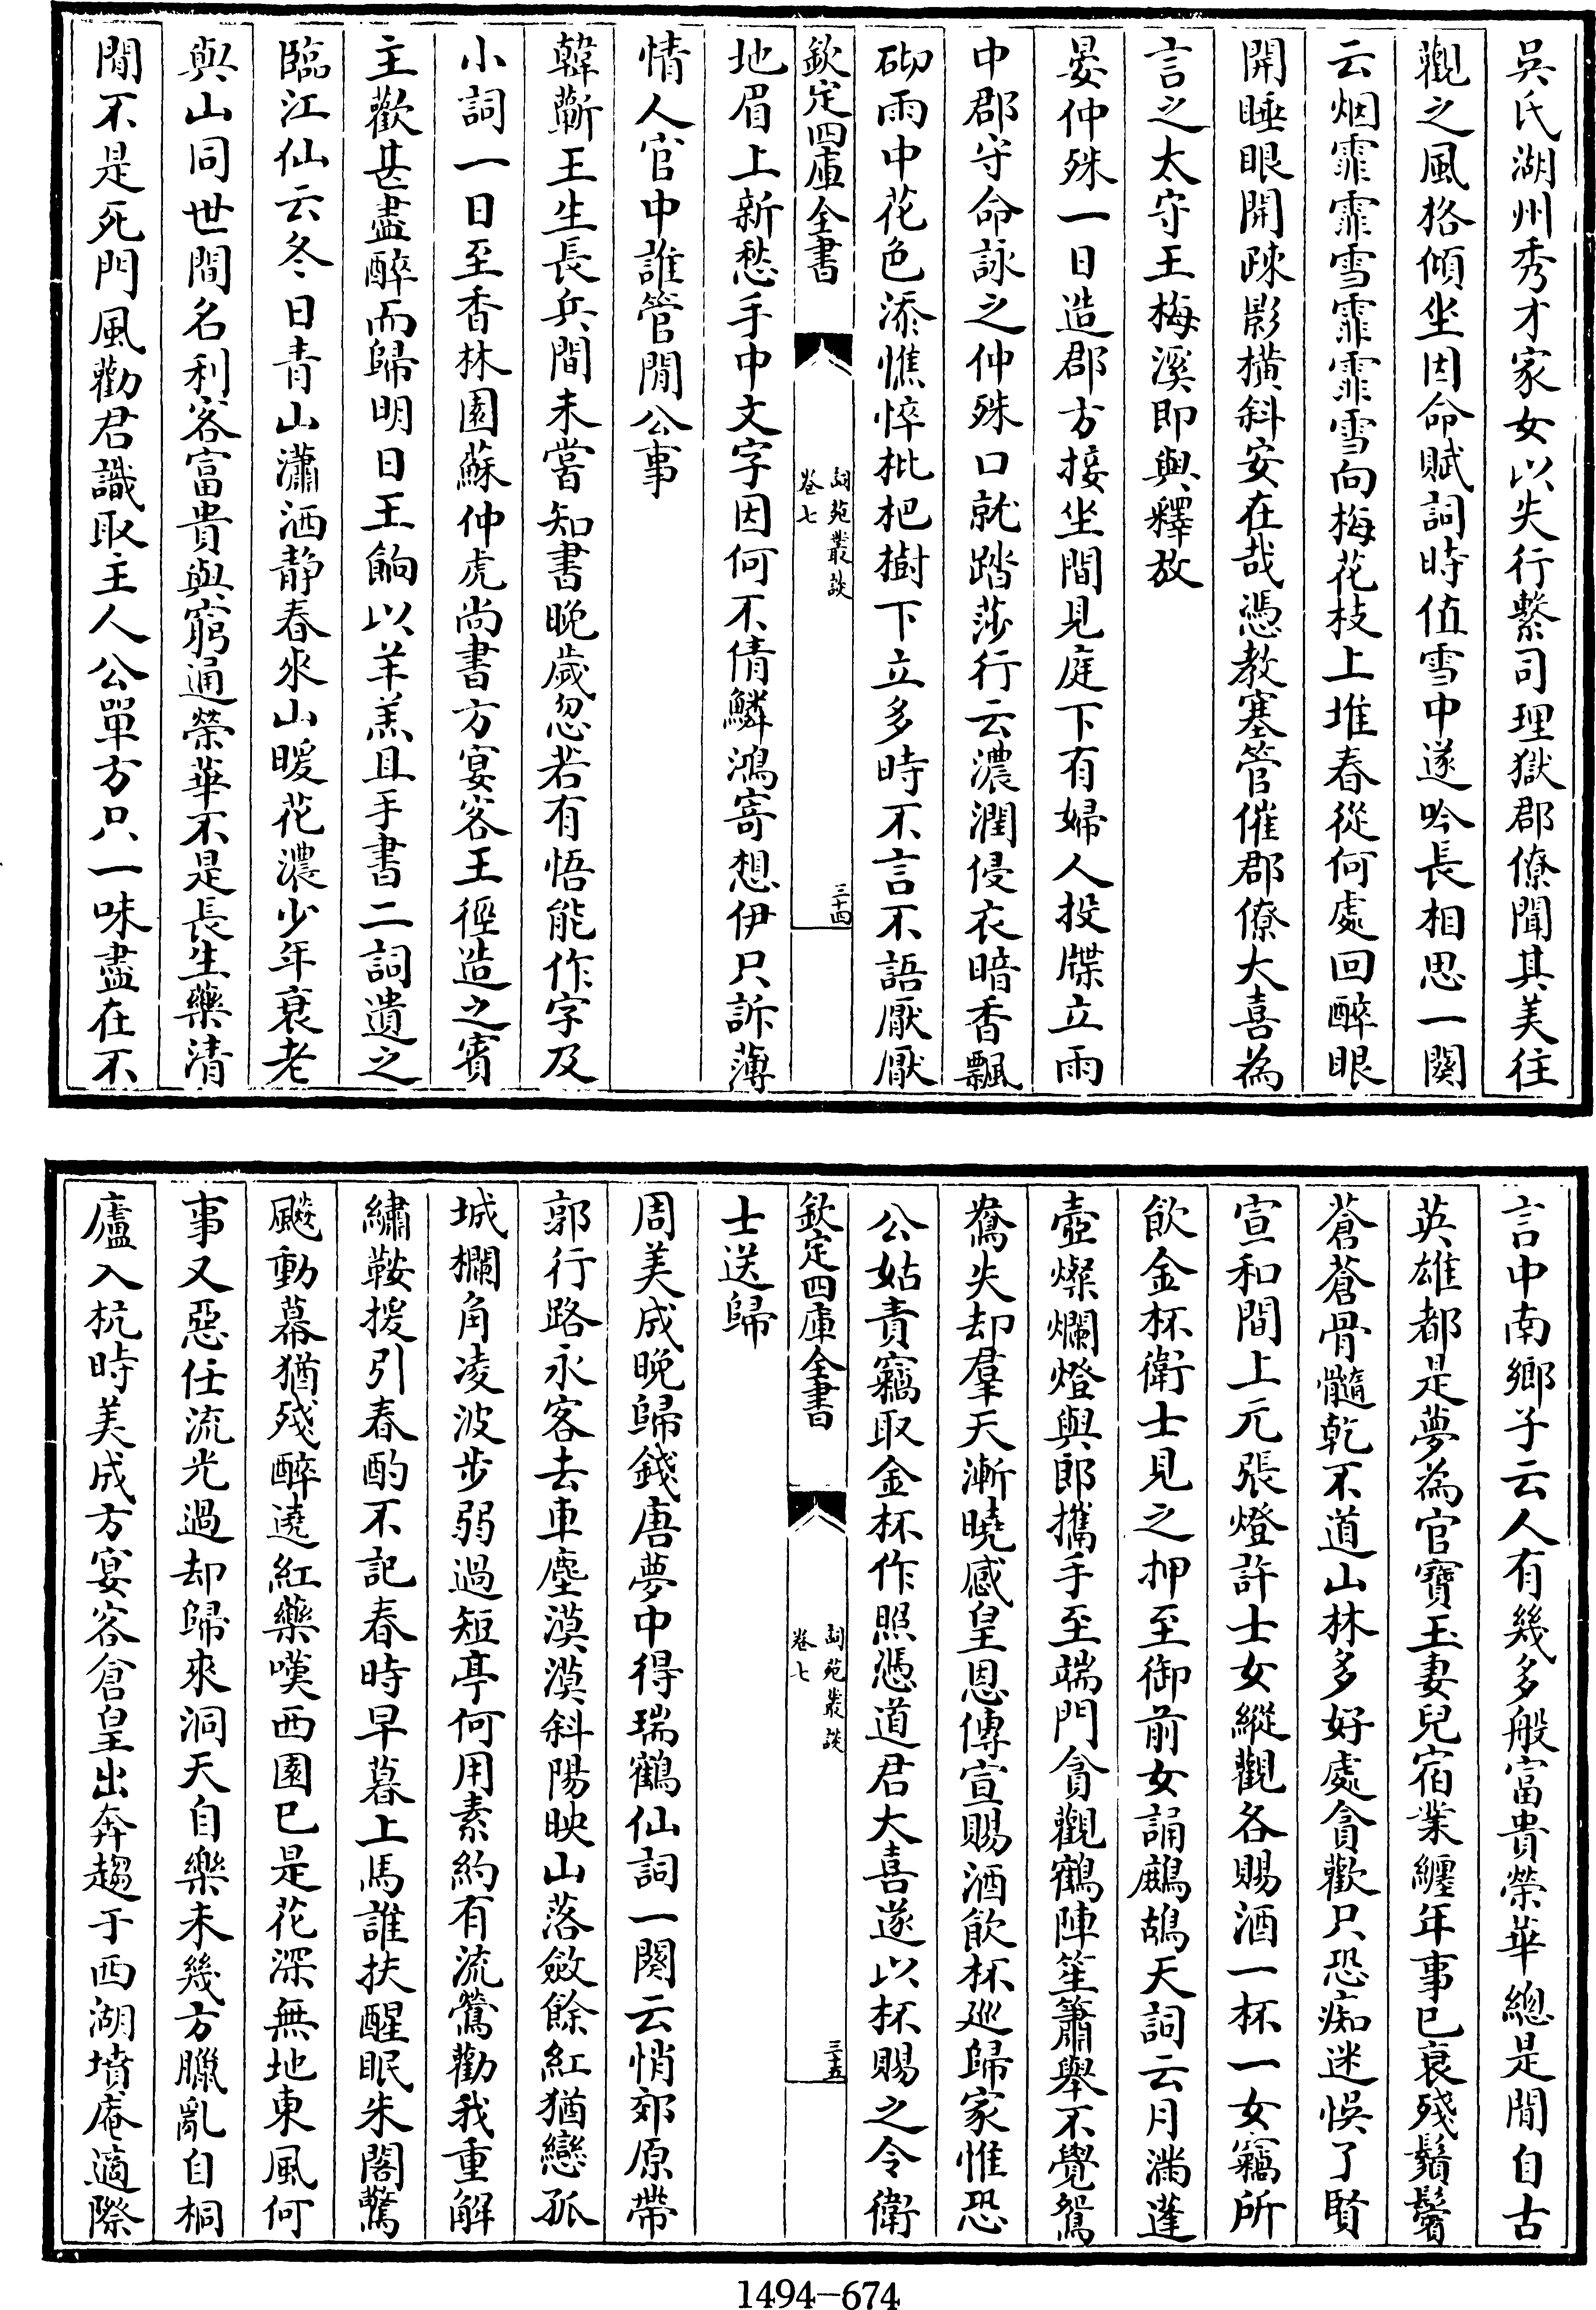 吳氏湖州秀才家女以失行繫司理獄郡僚聞其美往
觀之風格傾坐因命賦詞時值雪中遂吟長相思一闋
云烟霏霏雪霏霏雪向梅花枝上堆春從何處回醉眼
開睡眼開疎影橫斜安在哉憑教塞管催郡僚大喜為
言之太守王梅溪即與釋放
晏仲殊一日造郡方接坐間見庭下有婦人投牒立雨
中郡守命詠之仲殊口就踏莎行云濃潤侵衣暗香飄
砌雨中花色添憔悴枇杷樹下立多時不言不語厭厭
欽定四庫全書
詞苑叢談
卷七
三十四
地眉上新愁手中文字因何不倩鱗鴻寄想伊只訴薄
情人官中誰管閒公事
韓蘄王生長兵間未嘗知書晚歲忽若有悟能作字及
小詞一日至香林園蘇仲虎尚書方宴客王徑造之賓
主歡甚盡醉而歸明日王餉以羊羔且手書二詞遺之
臨江仙云冬日青山瀟洒静春來山暖花濃少年衰老
與山同世間名利客富貴與窮通榮華不是長生藥清
閒不是死門風勸君識取主人公單方只一味盡在不
言中南鄉子云人有幾多般富貴榮華總是閒自古
英雄都是夢為官寶玉妻兒宿業纏年事已衰殘鬚鬢
蒼蒼骨髓乾不道山林多好處貪歡只恐痴迷悞了賢
宣和間上元張燈許士女縱觀各賜酒一杯一女竊所
飲金杯衛士見之押至御前女誦鷓鴣天詞云月滿蓬
壺燦爛燈與郎攜手至端門貪觀鶴陣笙簫舉不覺鴛
鴦失却羣天漸曉感皇恩傳宣賜酒飲杯巡歸家惟恐
公姑責竊取金杯作照憑道君大喜遂以杯賜之令衛
欽定四庫全書
詞苑叢談
卷七
三十五
士送歸
周美成晚歸錢唐夢中得瑞鶴仙詞一闋云悄郊原帶
郭行路永客去車塵漠漠斜陽映山落斂餘紅猶戀孤
城欄角凌波步弱過短亭何用素約有流鶯勸我重解
繡鞍援引春酌不記春時早暮上馬誰扶醒眠朱閣驚
飈動幕猶殘醉遶紅藥嘆西園已是花深無地東風何
事又惡任流光過却歸來洞天自樂未幾方臘亂自桐
廬入杭時美成方宴客倉皇出奔趨于西湖墳庵適際
1494-674